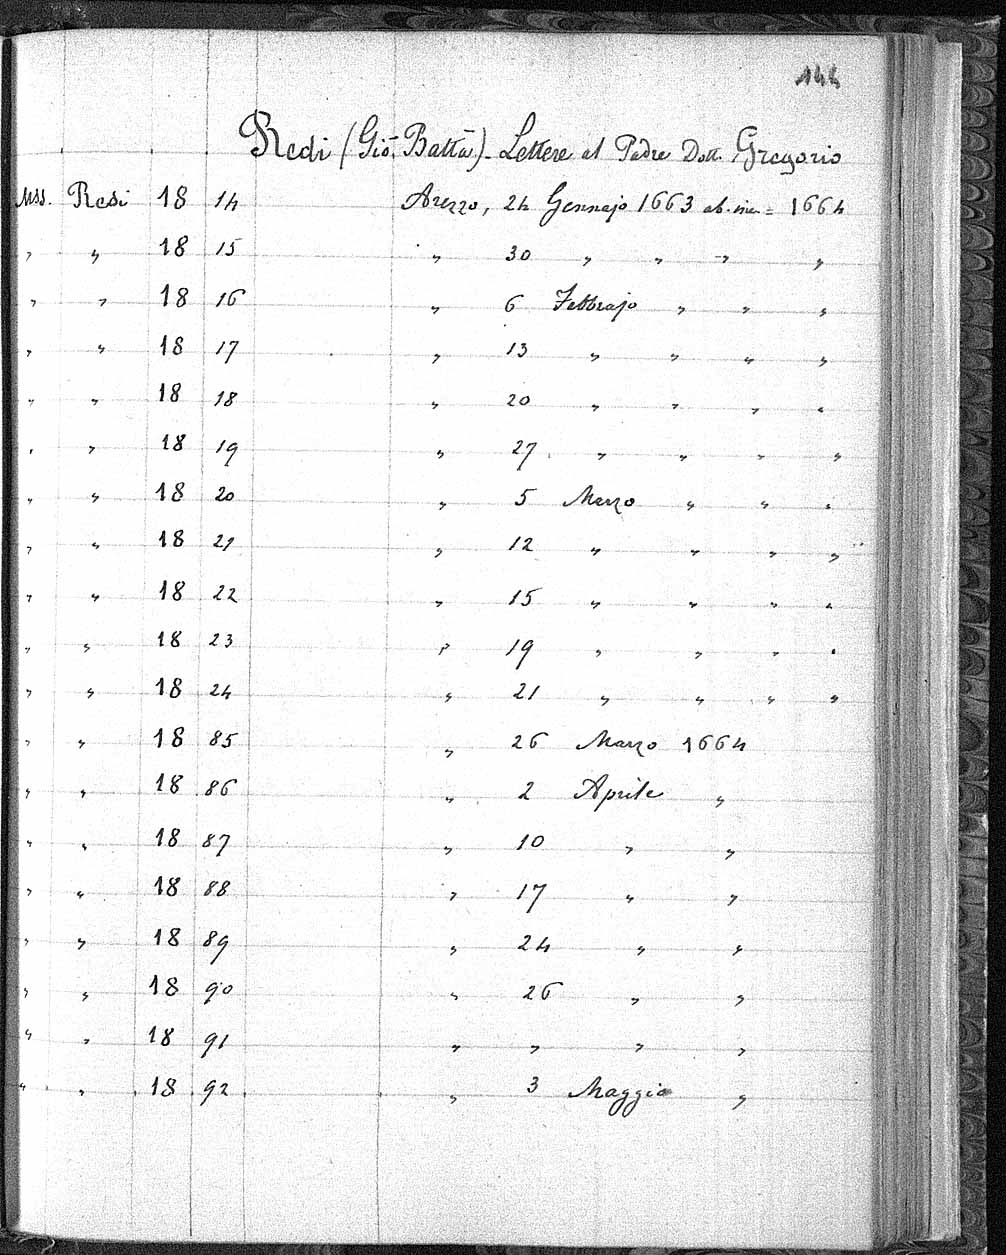 144
Redi (Gio. Batta) - Lettere al Padre Dott. Gregorio
Mss. Redi 18 14 Arezzo, 24 Gennajo 1663 ab. inc. = 1664
" " 18 15 " 30 " " " "
" " 18 16 " 6 Febbrajo " " "
" " 18 17 " 13 " " " "
" " 18 18 " 20 " " " "
" " 18 19 " 27 " " " "
" " 18 20 " 5 Marzo " " "
" " 18 21 " 12 " " " "
" " 18 22 " 15 " " " "
" " 18 23 " 19 " " " "
" " 18 24 " 21 " " " "
" " 18 85 " 26 Marzo 1664
" " 18 86 " 2 Aprile "
" " 18 87 " 10 " "
" " 18 88 " 17 " "
" " 18 89 " 24 " "
" " 18 90 " 26 " "
" " 18 91 " " " "
" " 18 92 " 3 Maggio "